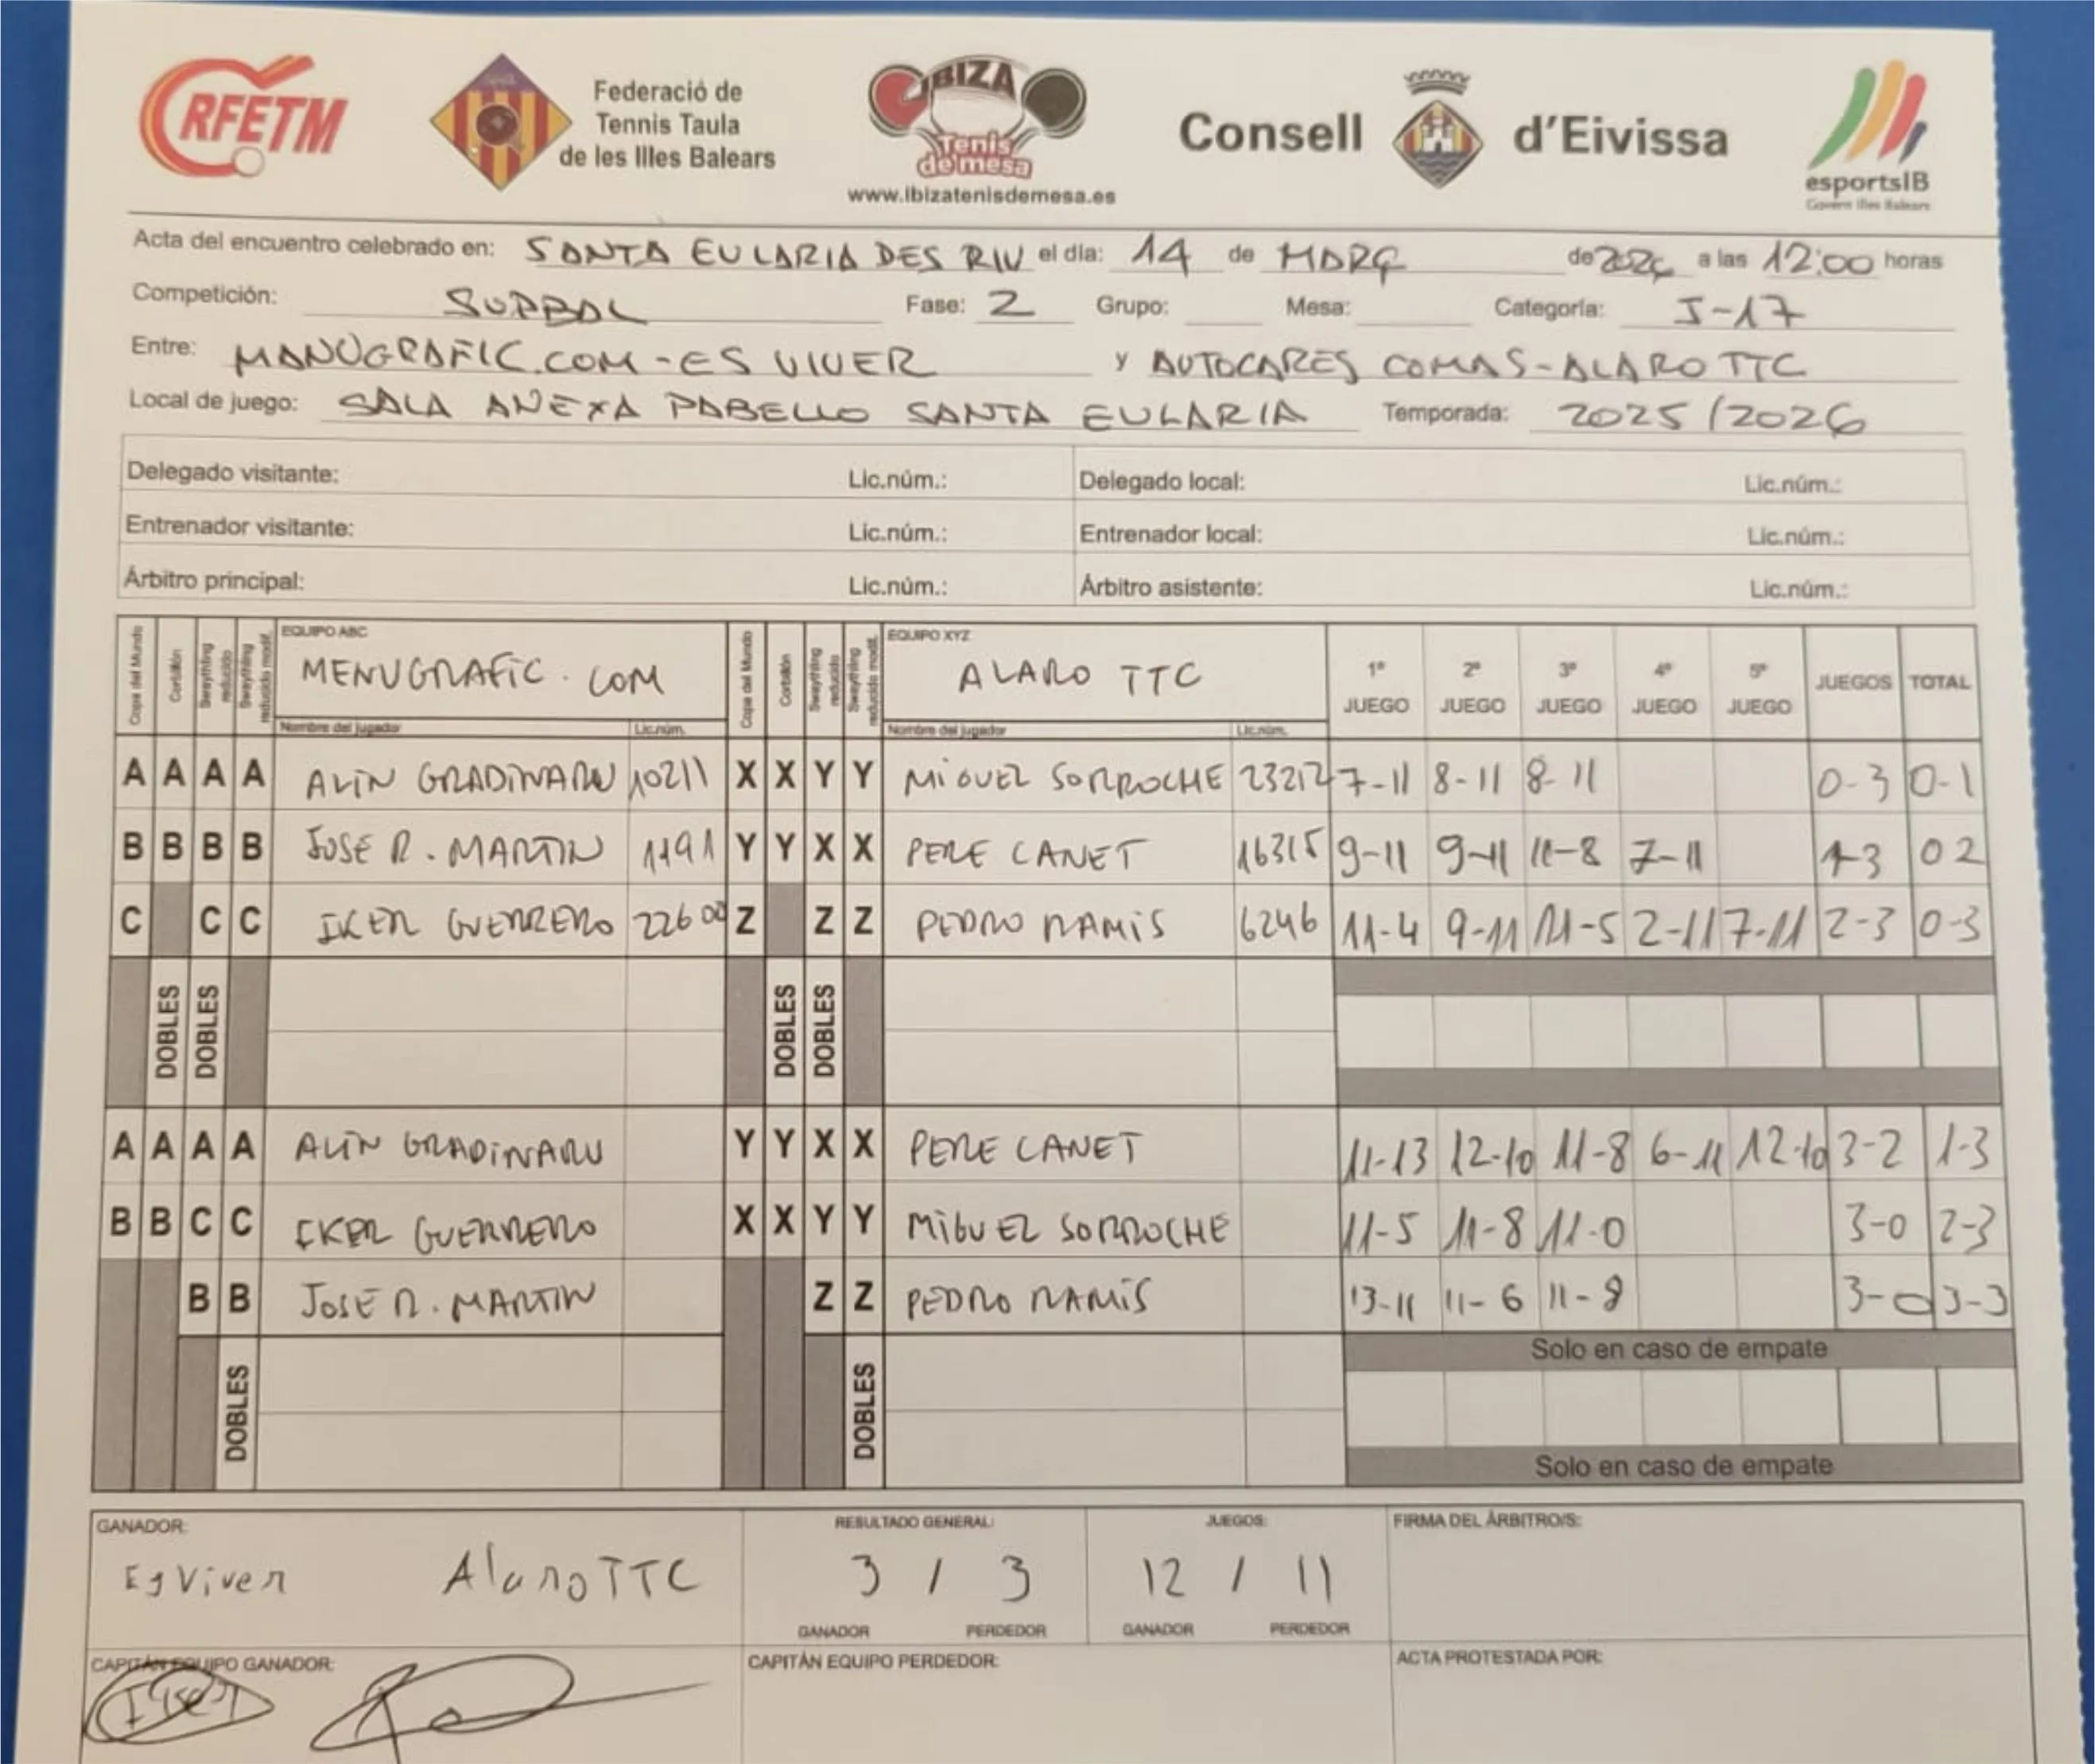 RFETM
Federació de
Tennis Taula
de les Illes Balears
IBIZA
Tenis
de mesa
www.ibizatenisdemesa.es
Consell d'Eivissa
esportsIB
Govern Illes Balears
Acta del encuentro celebrado en: SANTA EULARIA DES RIU el día: 14 de MARÇ de 2026 a las 12:00 horas
Competición: SUPBAL Fase: 2 Grupo: Mesa: Categoría: J-17
Entre: MANUGRAFIC.COM - ES VIVER y AUTOCARES COMAS - ALARO TTC
Local de juego: SALA ANEXA PABELLO SANTA EULARIA Temporada: 2025/2026
Delegado visitante: Lic.núm.: Delegado local: Lic.núm.:
Entrenador visitante: Lic.núm.: Entrenador local: Lic.núm.:
Árbitro principal: Lic.núm.: Árbitro asistente: Lic.núm.:
Copa del Mundo Corbillón Swaythling reducido Swaythling reducido modif. EQUIPO ABC MENUGRAFIC.COM Copa del Mundo Corbillón Swaythling reducido Swaythling reducido modif. EQUIPO XYZ ALARO TTC 1º JUEGO 2º JUEGO 3º JUEGO 4º JUEGO 5º JUEGO JUEGOS TOTAL
Nombre del jugador Lic.núm. Nombre del jugador Lic.núm.
A A A A ALIN GRADINARU 10211 X X Y Y MIGUEL SORROCHE 23212 7-11 8-11 8-11 0-3 0-1
B B B B JOSE R. MARTIN 1191 Y Y X X PERE CANET 16315 9-11 9-11 11-8 7-11 1-3 0 2
C C C IKER GUERRERO 22600 Z Z Z PEDRO RAMIS 6246 11-4 9-11 11-5 2-11 7-11 2-3 0-3
DOBLES DOBLES DOBLES DOBLES
A A A A ALIN GRADINARU Y Y X X PERE CANET 11-13 12-10 11-8 6-11 12-10 3-2 1-3
B B C C IKER GUERRERO X X Y Y MIGUEL SORROCHE 11-5 11-8 11-0 3-0 2-3
B B JOSE R. MARTIN Z Z PEDRO RAMIS 13-11 11-6 11-8 3-0 3-3
Solo en caso de empate
DOBLES DOBLES
Solo en caso de empate
GANADOR: RESULTADO GENERAL: JUEGOS: FIRMA DEL ÁRBITRO/S:
Es Viver Alaro TTC 3 / 3 12 / 11
GANADOR PERDEDOR GANADOR PERDEDOR
CAPITÁN EQUIPO GANADOR: CAPITÁN EQUIPO PERDEDOR: ACTA PROTESTADA POR: